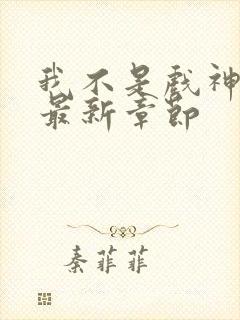 我不是戏神
最新章节
秦菲菲